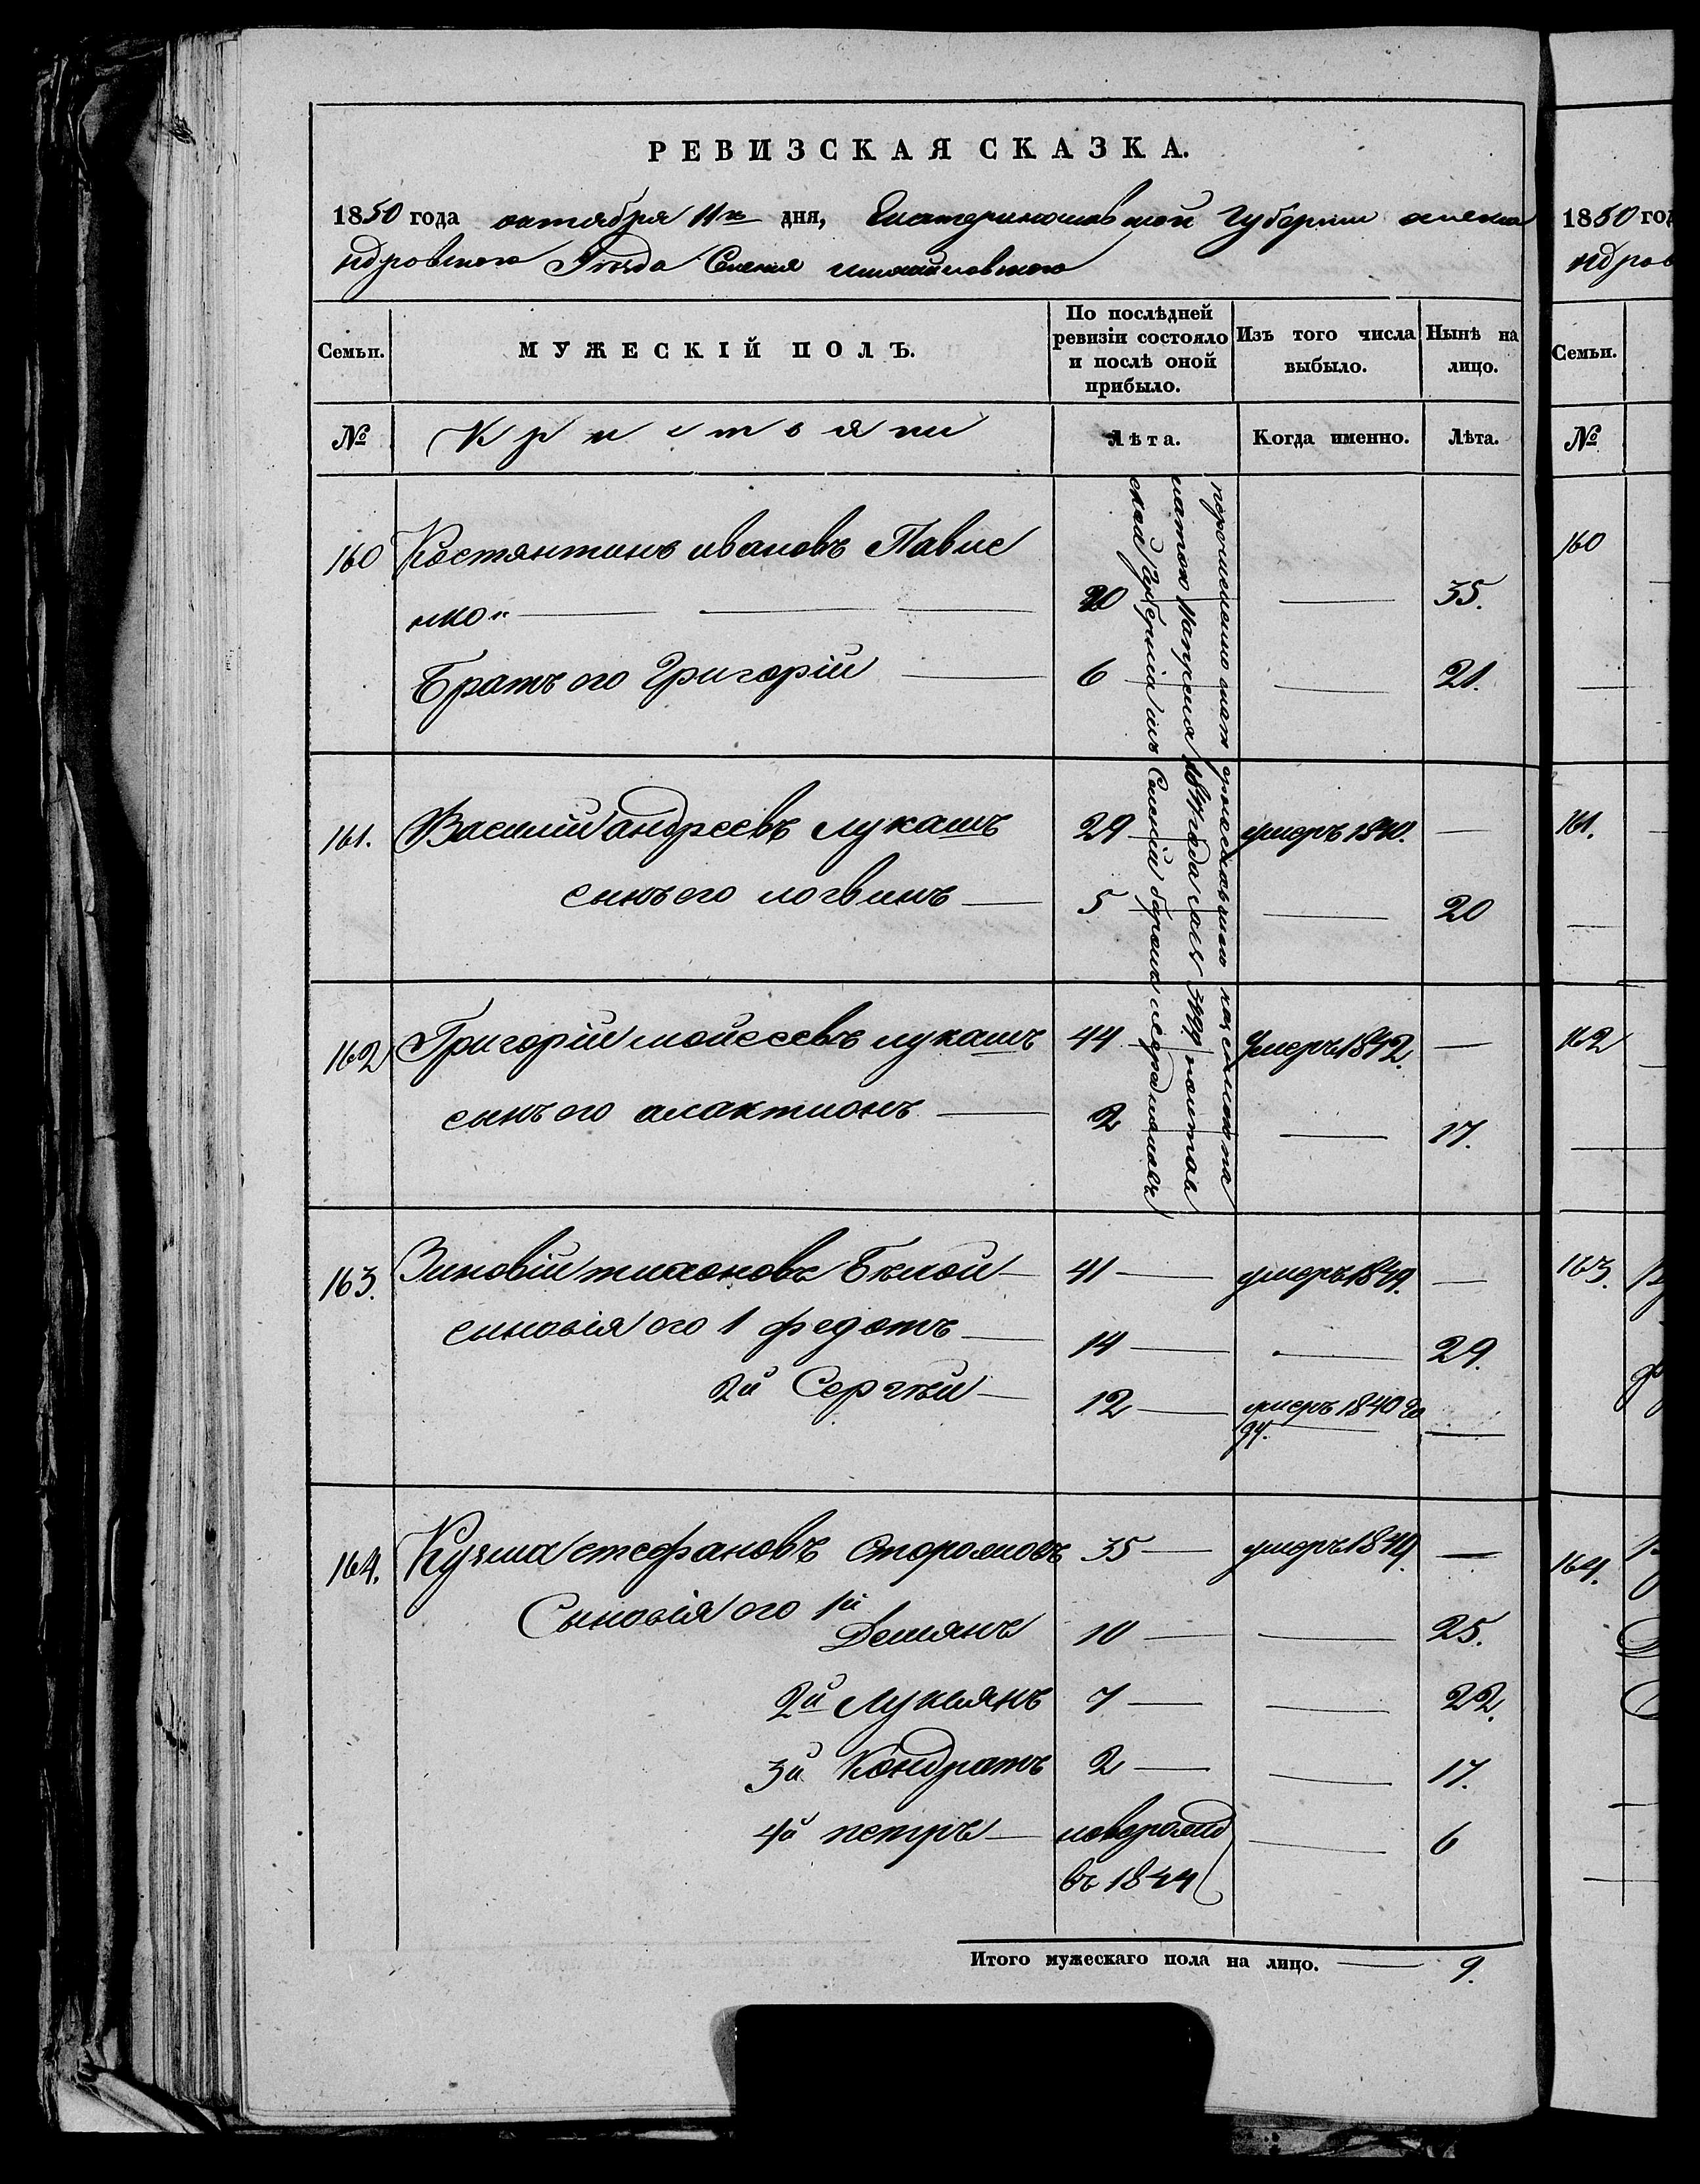 РЕВИЗСКАЯ СКАЗКА.
1850 года октября 11го дня, Екатеринославской Губернии алекса
ндровского Уезда Селения михайловского
Семьи.
МУЖЕСКІЙ ПОЛЪ.
По послѣдней ревизіи состояло и послѣ оной прибыло.
Изъ того числа выбыло.
Нынѣ на лицо.
№
Крестьяни
Лѣта.
Когда именно.
Лѣта.
160 Костянтинъ ивановъ Павле
нко 20 — 35.
Братъ его Григорій — 6 — 21.
161. Василий андреевъ лукашъ 29 умеръ 1840. —
сынъ его логвинъ — 5 — 20
162 Григорій мойсеевъ лукашъ 44 Умеръ 1842. —
сынъ его алактионъ — 2 — 17.
163. Зиновій тихоновъ Бѣлой — 41 — умеръ 1849. —
синовія его 1 федотъ — 14 — — 29.
2й Сергѣй — 12 — умеръ 1840 го
ду. —
164. Кузма стефановъ Стороженъ 35 — умеръ 1849. —
Сыновія его 1й Демянъ 10 — — 25.
2й Лукьянъ 7 — — 22.
3й Кондратъ 2 — — 17.
4й петръ — новорожд — 6
въ 1844
Губерніи изъ Селеній
1847 года за № 3999 полтав
Итого мужескаго пола на лицо. — 9.
1850 год
ндров
Семьи.
№
160
161.
162
163.
164.